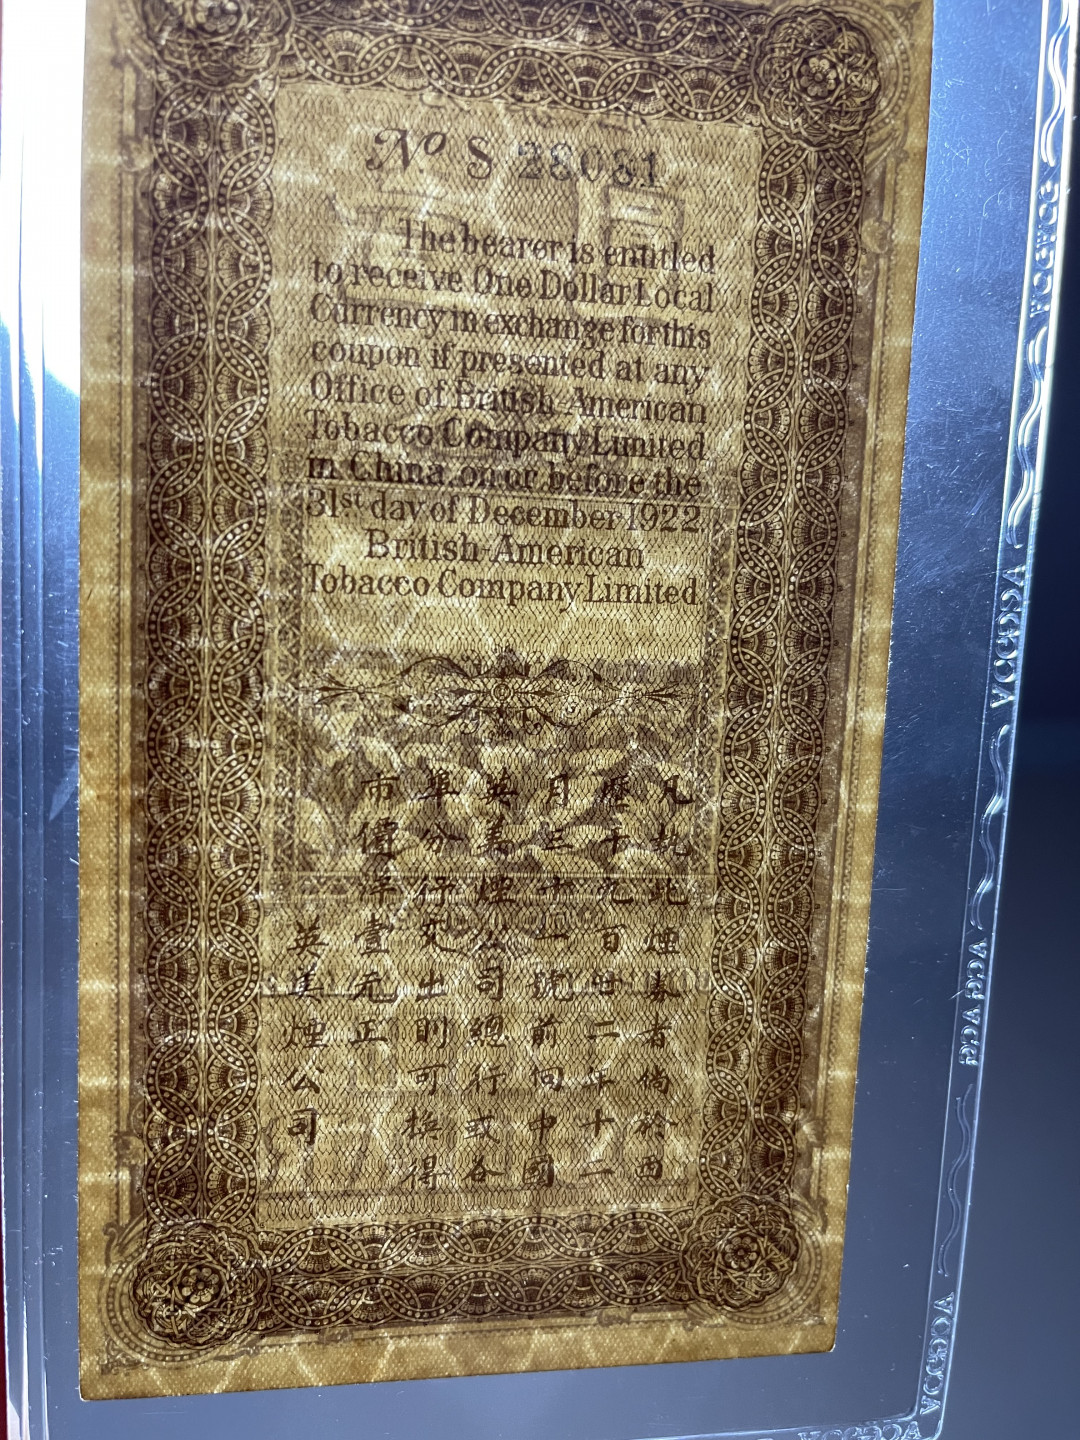 No S 28081
The bearer is entitled
to receive One Dollar Local
Currency in exchange for this
coupon if presented at any
Office of British-American
Tobacco Company Limited
in China, on or before the
31st day of December 1922
British-American
Tobacco Company Limited
凡執此煙券者倘於西
歷千九百廿二年十二
月三十一號前向中國
英美煙公司總行或各
埠分行交出則可換得
市價洋壹元正
英美煙公司